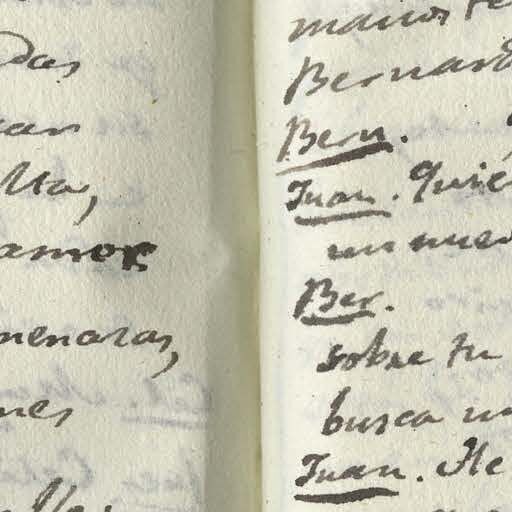 das
lla,
amor
menazas,
nes
manos te
Bernard
Bern.
Juan. Quié
un nuev
Ber.
sobre tu
busca un
Juan. He